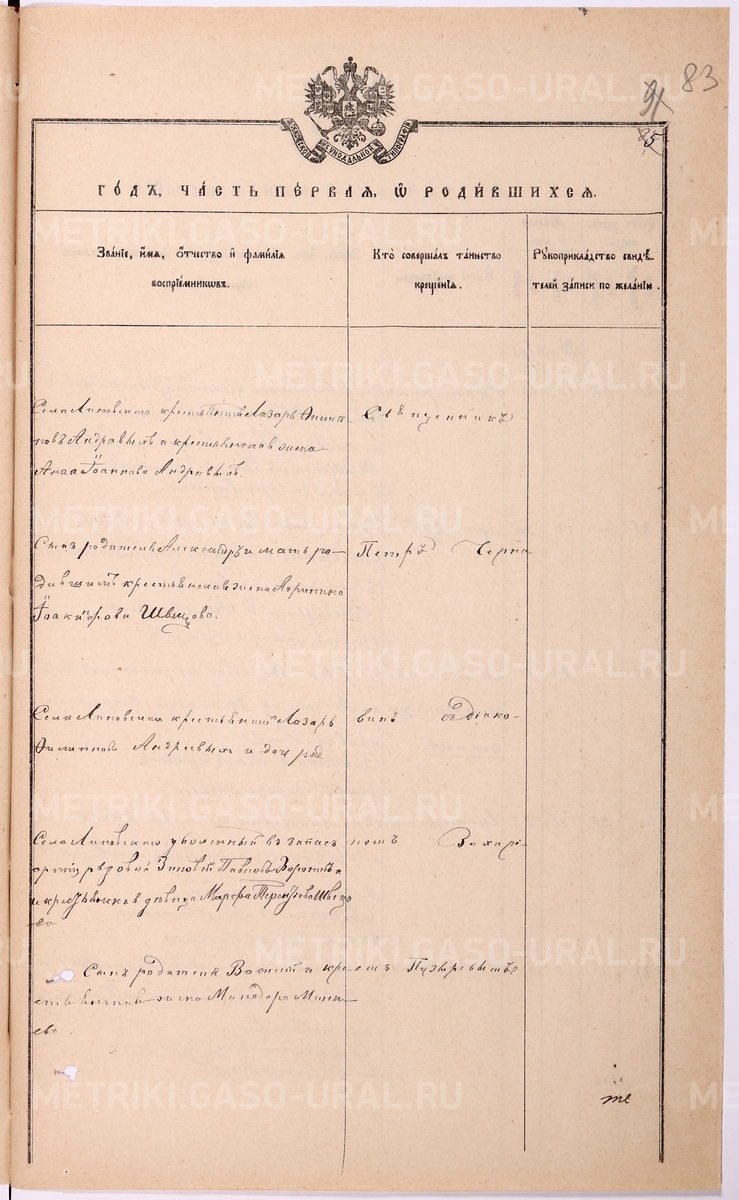 83
91
85
МОСКОВСКОЙ СѴНОДАЛЬНОЙ ТИПОГРАФІИ
ГО́ДЪ, ЧА́СТЬ ПЕ́РВАЯ, Ѡ҆ РОДИ́ВШИХСЯ.
Зва́ніе, и҆́мя, ѻ҆́тчество и҆ фами́лія
воспріе́мникѡвъ.
Кто̀ соверша́лъ та́инство
креще́нія.
Рꙋкоприкла́дство свидѣ́-
телей за́писи по жела́нію.
Села Липовскаго крестьянинъ Лазарь Филип-
повъ Андреевыхъ и крестьянская жена
Анна Іоаннова Андреевыхъ.
Священникъ
Сынъ родителя Александръ и мать ро-
дившимъ крестьянская жена Агрипина
Швецова.
Петръ Черна
Села Липовскаго крестьянинъ Лазарь
Филипповъ Андреевыхъ и дочь род
винъ съ Діако-
Села Липовскаго уволенный въ запасъ
арміи рядовой Зиновій Павловъ
и крестьянская дѣвица Марфа Терентьева Швецо
ва
номъ Захарі-
Сынъ родителя Василій и кре-
стьянская жена Минодора Мини-
ева.
емъ Пузыревымъ
те
METRIKI.GASO-URAL.RU